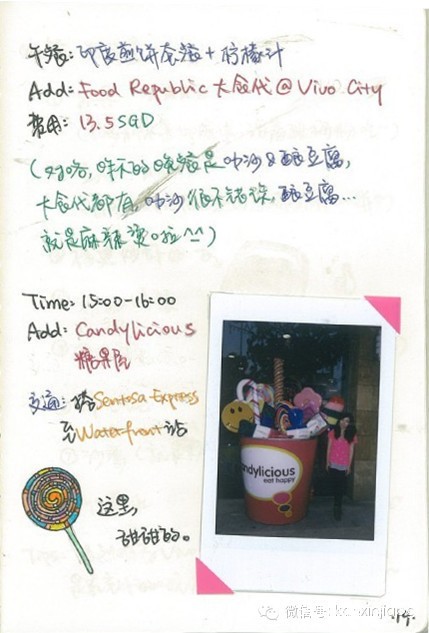 午餐:印度煎饼套餐+柠檬汁
Add: Food Republic 大食代 @ Vivo City
费用: 13.5SGD
(对咯,昨天的晚餐是叻沙&酿豆腐,
大食代都有,叻沙很不错哦,酿豆腐...
就是麻辣烫啦^^)
Time: 15:00-16:00
Add: Candylicious
糖果店
交通: 搭Sentosa Express
至Waterfront站
这里,
甜甜的。
ndylicious
eat happy
微信号:
·14·